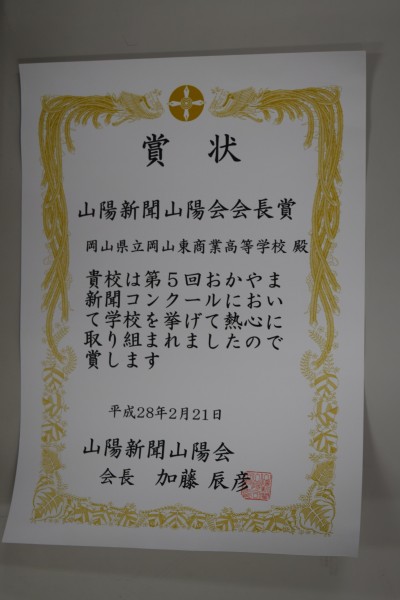 賞状
山陽新聞山陽会会長賞
岡山県立岡山東商業高等学校 殿
貴校は第5回おかやま
新聞コンクールにおい
て学校を挙げて熱心に
取り組まれましたので
賞します
平成28年2月21日
山陽新聞山陽会
会長 加藤 辰彦